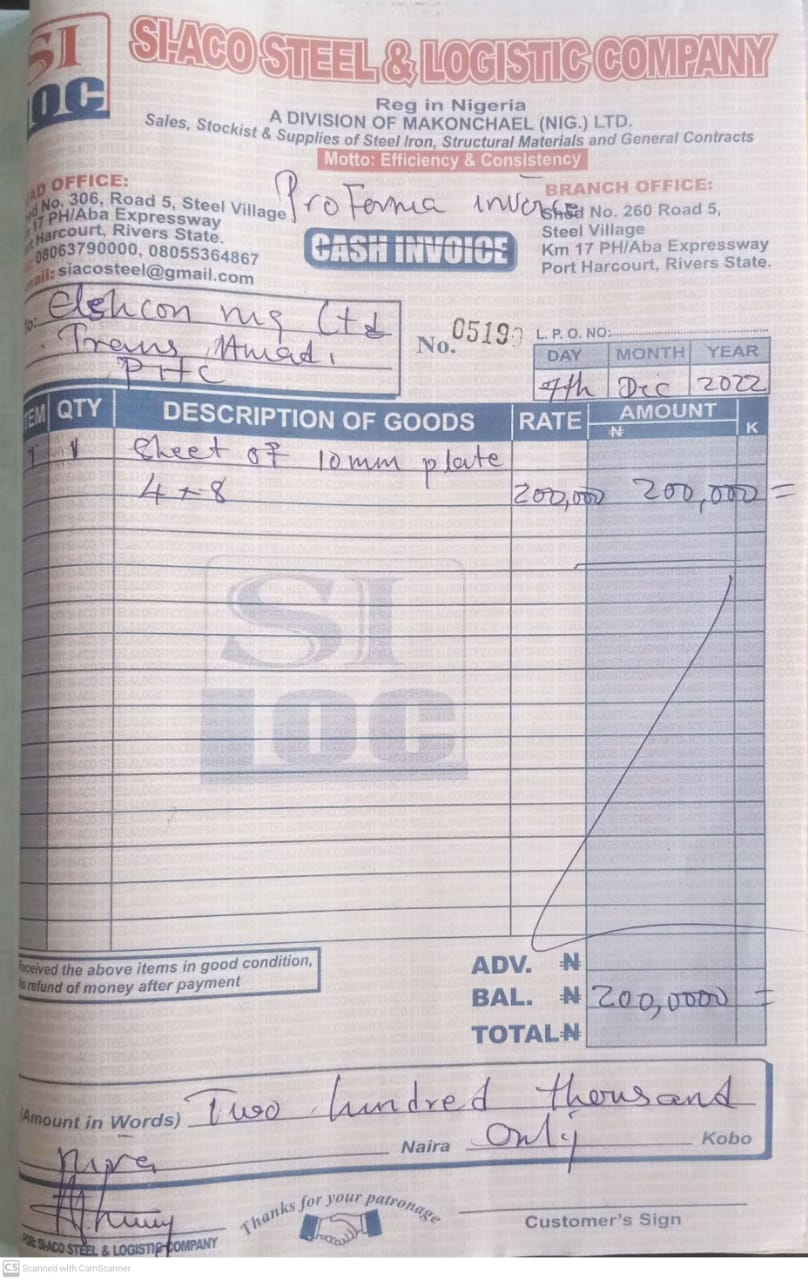 SI
LOC
SI-ACO STEEL & LOGISTIC COMPANY
Reg in Nigeria
A DIVISION OF MAKONCHAEL (NIG.) LTD.
Sales, Stockist & Supplies of Steel Iron, Structural Materials and General Contracts
Motto: Efficiency & Consistency
Proforma invoice
AD OFFICE:
No. 306, Road 5, Steel Village
17 PH/Aba Expressway
Harcourt, Rivers State.
08063790000, 08055364867
mail: siacosteel@gmail.com
CASH INVOICE
BRANCH OFFICE:
Shed No. 260 Road 5,
Steel Village
Km 17 PH/Aba Expressway
Port Harcourt, Rivers State.
To: Elshcon nig Ltd
Trans Amadi
PHC
No. 0519
L. P. O. NO:
DAY MONTH YEAR
7th Dec 2022
TEM QTY DESCRIPTION OF GOODS RATE AMOUNT
₦ K
1 1 Sheet of 10mm plate
4 x 8 200,000 200,000 =
SI
LOC
eceived the above items in good condition,
o refund of money after payment
ADV. ₦
BAL. ₦ 200,0000 =
TOTAL ₦
(Amount in Words) Two hundred thousand
Naira Only Kobo
FOR: SI-ACO STEEL & LOGISTIC COMPANY
Thanks for your patronage
Customer's Sign
CS Scanned with CamScanner